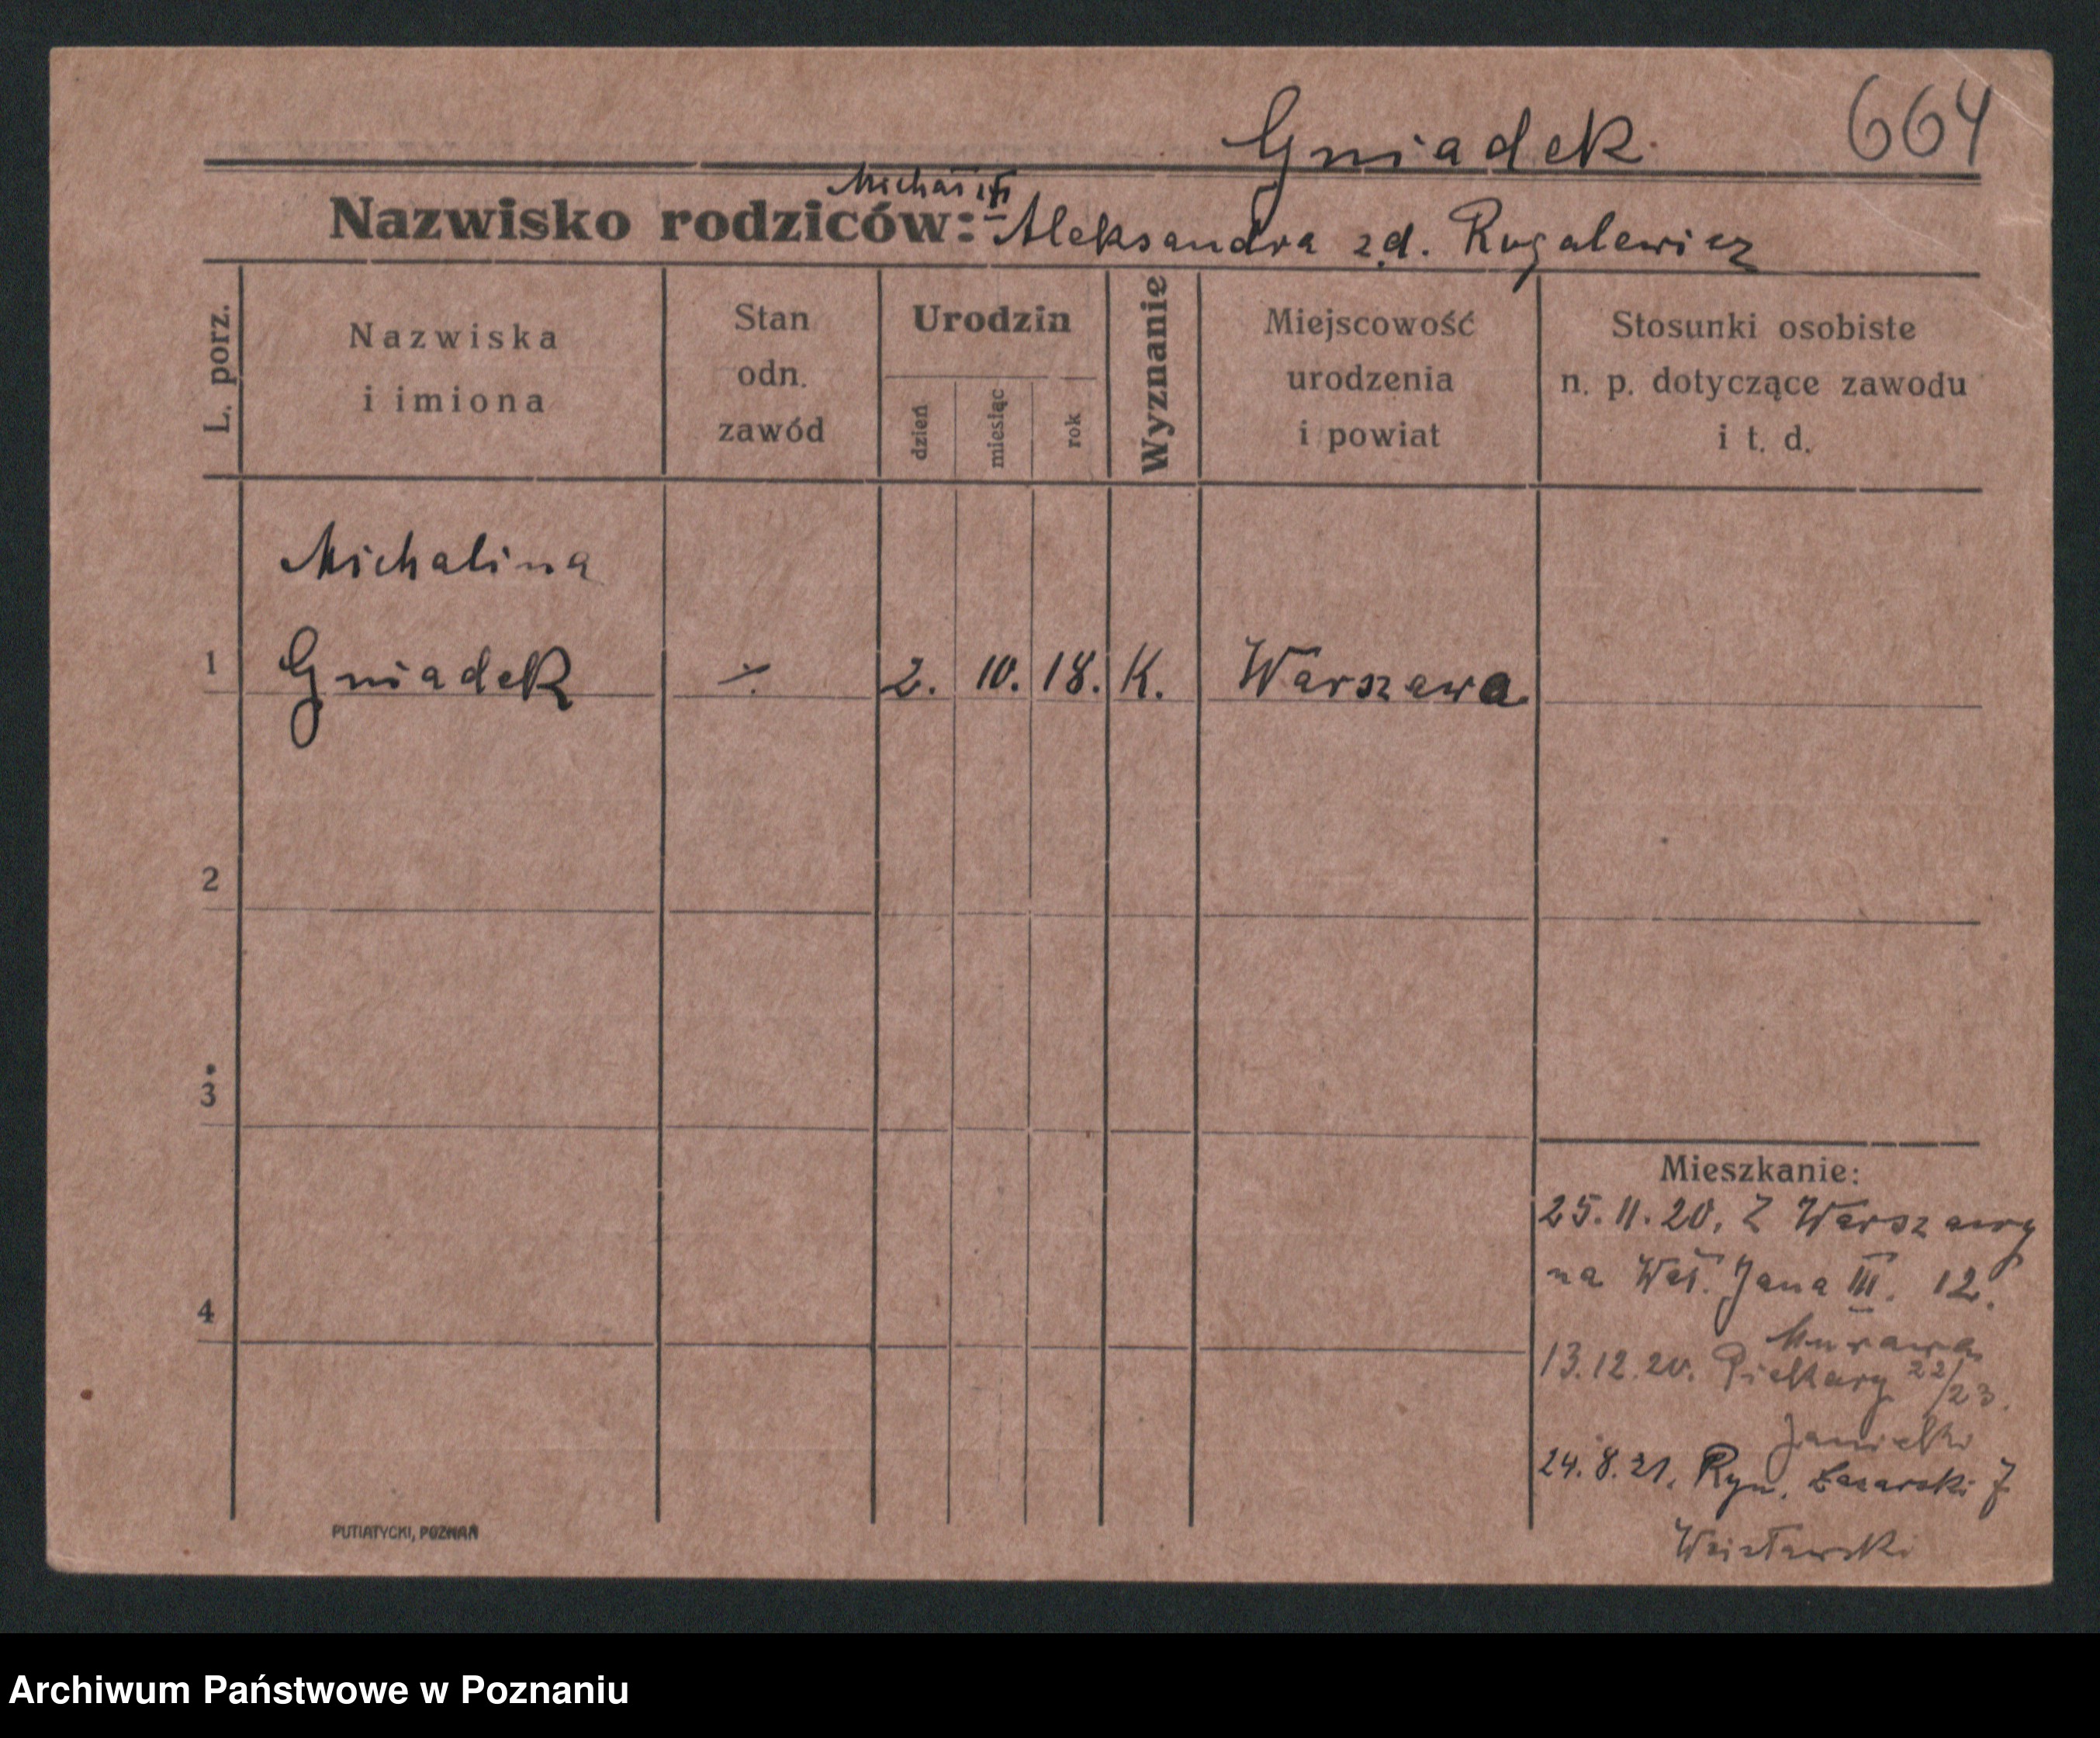 Gniadek 664
Michał i
Nazwisko rodziców: Aleksandra z d. Rugalewicz
L. porz.
Nazwiska
i imiona
Stan
odn.
zawód
Urodzin
dzień
miesiąc
rok
Wyznanie
Miejscowość
urodzenia
i powiat
Stosunki osobiste
n. p. dotyczące zawodu
i t. d.
Michalina
1 Gniadek ⁒ 2. 10. 18. K. Warszawa
2
3
4
Mieszkanie:
25.11.20. Z Warszawy
na Wał. Jana III. 12.
Murawa
13.12.20. Piekary 22/23.
24.8.21. Ryn. Łazarski 7
PUTIATYCKI, POZNAŃ
Archiwum Państwowe w Poznaniu